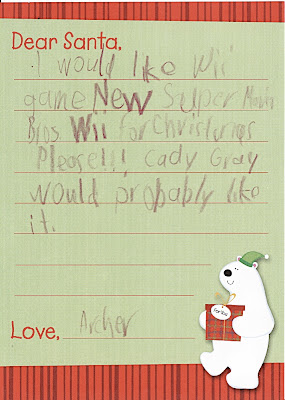 Dear Santa,
I would like Wii
game New Super Mario
Bros. Wii for Christmas
Please!!! Cady Gray
would probably like
it.
Love, Archer